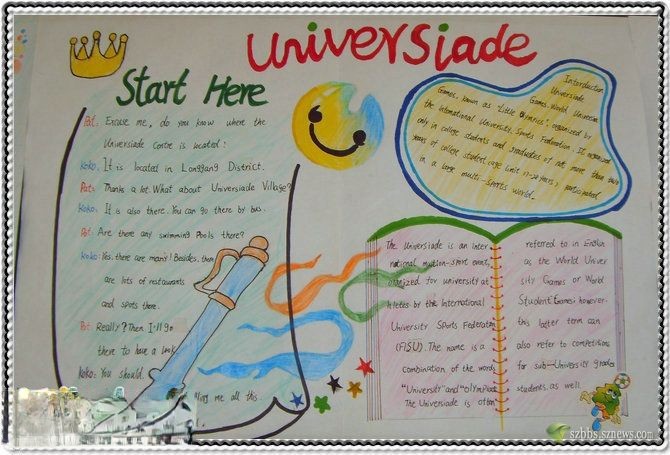 Universiade
Start Here
Pat: Excuse me, do you know where the
Universiade Centre is located?
Koko: It is located in Longgang District.
Pat: Thanks a lot. What about Universiade Village?
Koko: It is also there. You can go there by bus.
Pat: Are there any swimming Pools there?
Koko: Yes, there are many! Besides, there
are lots of restaurants
and spots there.
Pat: Really? Then I'll go
there to have a look
Koko: You should.
me all this
Universiade
Games, known as "Little Games, World Universia
organized by
the International University Sports Federation. It organized
only in college students and graduates of not more than two
years of college student (age limit 17-28 years), participated
in a large multi-sports world.
The Universiade is an inter
national multion-sport event,
organized for university at
hletes by the International
University Sports Federation
(FISU). The name is a
combination of the words
"University" and "olympiad.
The Universiade is often
referred to in English
as the World Univer
sity Games or World
Student Games; however,
this latter term can
also refer to competitions
for sub-University grades
students, as well.
szbbs.sznews.com